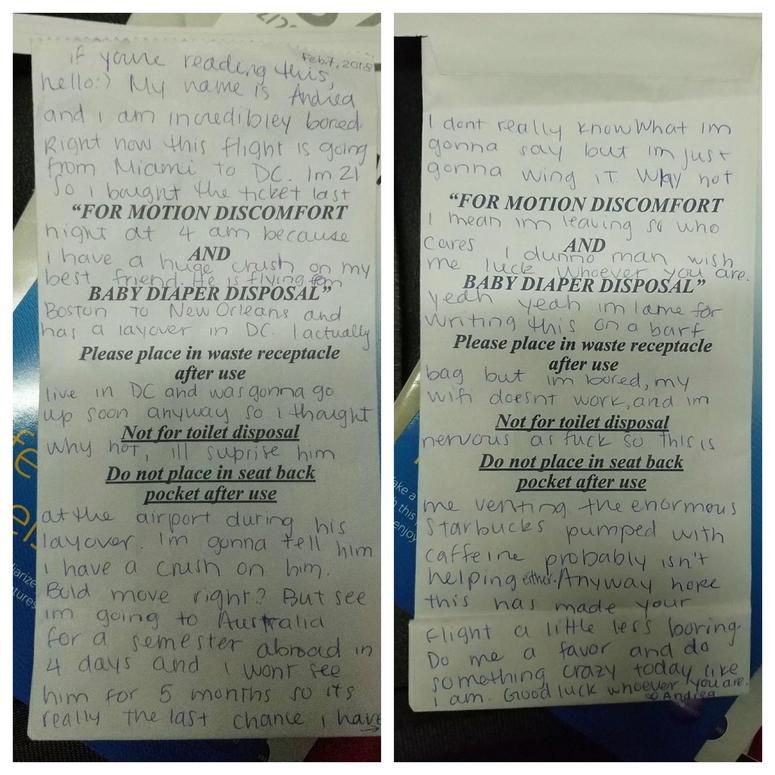 Feb 7, 2015
if youre reading this,
hello:) My name is Andrea
and i am incredibley bored
Right now this flight is going
from Miami to DC. Im 21
so i baught the ticket last
"FOR MOTION DISCOMFORT
night at 4 am because
AND
i have a huge crush on my
best friend. He is flying from
BABY DIAPER DISPOSAL"
Boston to New Orleans and
has a layover in DC. I actually
Please place in waste receptacle
after use
live in DC and was gonna go
up soon anyway so i thought
Not for toilet disposal
why not, ill suprise him
Do not place in seat back
pocket after use
at the airport during his
layover. Im gonna tell him
i have a crush on him.
Bold move right? But see
im going to Australia
for a semester abroad in
4 days and i wont see
him for 5 months so its
really the last chance i have
→
I dont really know What im
gonna say but im just
gonna wing iT. Why not
"FOR MOTION DISCOMFORT
I mean im leaving so who
cares
AND
I dunno man wish
me luck whoever you are.
BABY DIAPER DISPOSAL"
yeah yeah im lame for
writing this on a barf
Please place in waste receptacle
after use
bag but im bored, my
wifi doesnt work, and im
Not for toilet disposal
nervous as fuck so this is
Do not place in seat back
pocket after use
me venting the enormous
Starbucks pumped with
caffeine probably isn't
helping either. Anyway hope
this has made your
flight a little less boring.
Do me a favor and do
something crazy today like
i am. Good luck whoever you are.
Andrea